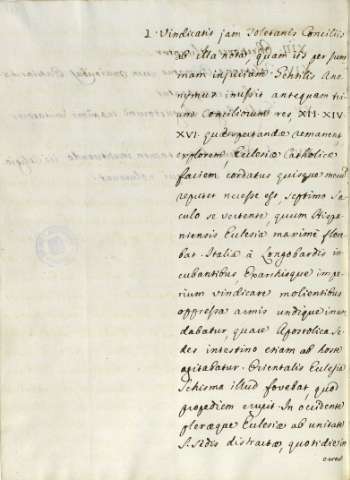 I. Vindicatis jam Toletanis Conciliis
ab illa nota, quam its per sum
mam injuriam Gentilis Ano
nymus inussit antequam tri
um Conciliorum res, XII. XIV
XVI. quae putandae remanent
explorem, Eclesiae Catholicae
faciem cordatus quisque mecum
reputet necesse est, septimo Sæ
culo se vertente, quum Hispa
niensis Eclesia maxime flore
bat. Italia à Longobardis in
cubantibus, Exarchisque impe
rium vindicare molientibus
oppressa armis undique inun
dabatur, quare Apostolica Se
des intestino etiam ab hoste
agitabatur. Orientalis Eclesia
Schisma illud fovebat, quod
propediem erupit. In occidente
pleræque Eclesiæ ab unitate
S. Sedis distractæ, quotidie in